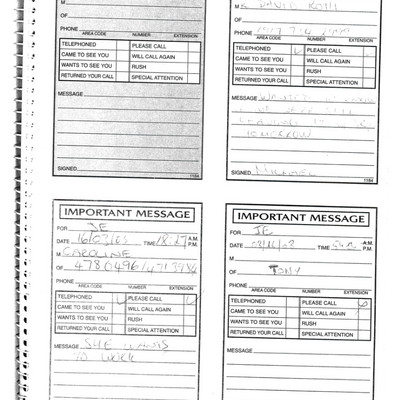 M
OF
PHONE
AREA CODE NUMBER EXTENSION
TELEPHONED PLEASE CALL
CAME TO SEE YOU WILL CALL AGAIN
WANTS TO SEE YOU RUSH
RETURNED YOUR CALL SPECIAL ATTENTION
MESSAGE
SIGNED
1184
M DAVID
OF
PHONE
AREA CODE NUMBER EXTENSION
TELEPHONED PLEASE CALL
CAME TO SEE YOU WILL CALL AGAIN
WANTS TO SEE YOU RUSH
RETURNED YOUR CALL SPECIAL ATTENTION
MESSAGE
TOMORROW
SIGNED MICHAEL
1184
IMPORTANT MESSAGE
FOR JE
DATE TIME 18:27 A.M. P.M.
M CAROLINE
OF
PHONE
AREA CODE NUMBER EXTENSION
TELEPHONED PLEASE CALL
CAME TO SEE YOU WILL CALL AGAIN
WANTS TO SEE YOU RUSH
RETURNED YOUR CALL SPECIAL ATTENTION
MESSAGE SHE WANTS
TO WORK
IMPORTANT MESSAGE
FOR JE
DATE TIME A.M. P.M.
M
OF TONY
PHONE
AREA CODE NUMBER EXTENSION
TELEPHONED PLEASE CALL
CAME TO SEE YOU WILL CALL AGAIN
WANTS TO SEE YOU RUSH
RETURNED YOUR CALL SPECIAL ATTENTION
MESSAGE